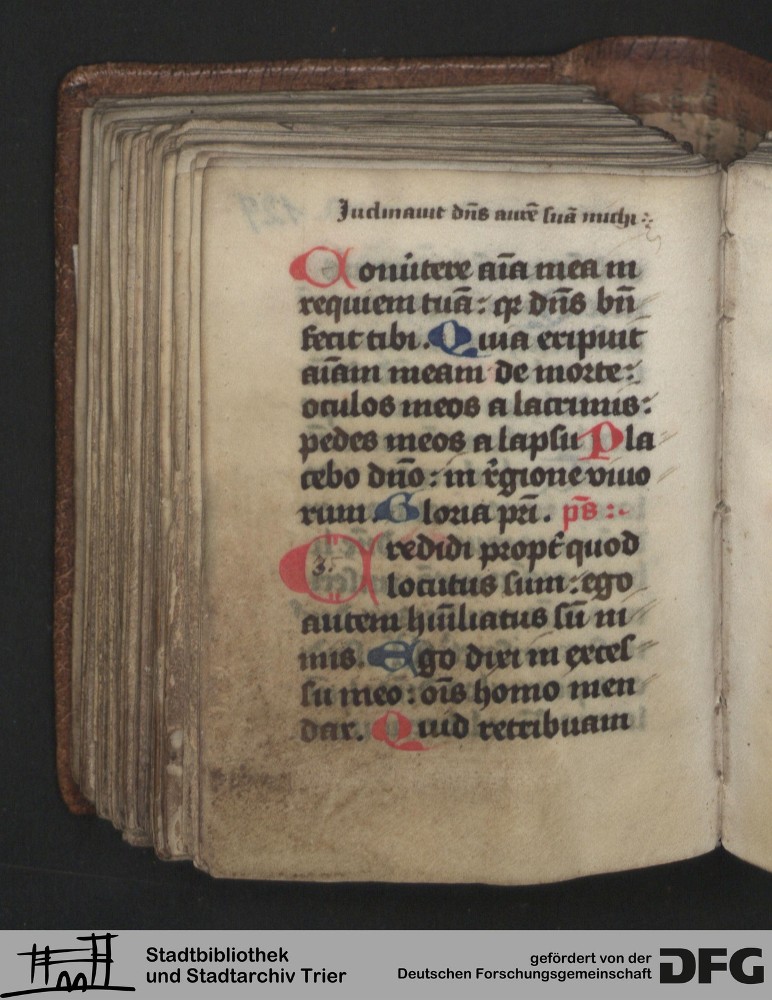 Inclinauit dn̄s aurē suā michi
Conu̇tere aīa mea in
requiem tuā: qz dn̄s bn̄
fecit tibi. Quia eripuit
aīam meam de morte:
oculos meos a lacrimis:
pedes meos a lapsu Pla
cebo dn̄o: in r̄gione viuo
rum Gloria pr̄i. ps̄
Credidi propt̄ quod
locutus sum: ego
autem hūiliatus sū ni
mis. Ego dixi in excel
su meo: oīs homo men
dax. Quid retribuam
3.
Stadtbibliothek
und Stadtarchiv Trier
gefördert von der
Deutschen Forschungsgemeinschaft
DFG